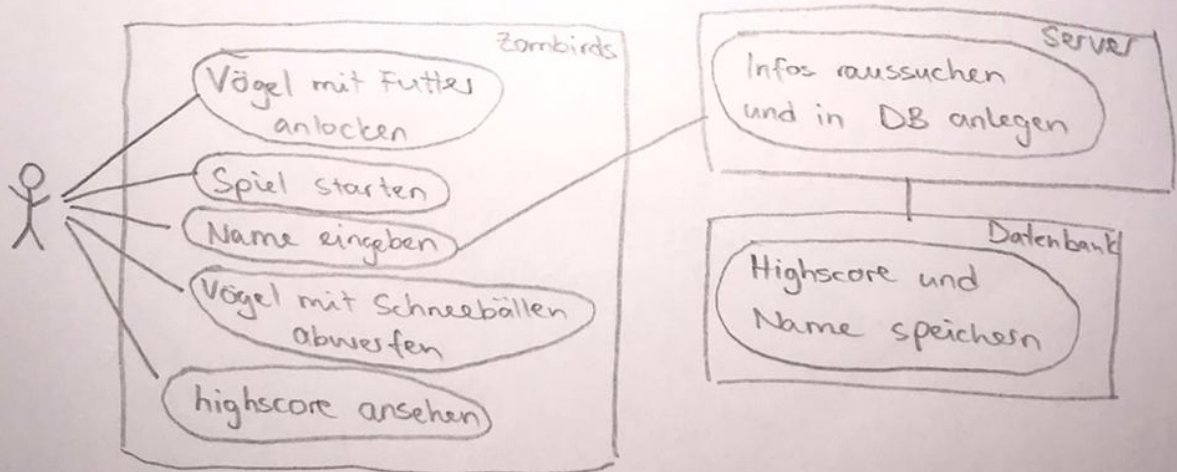 Zombirds
Vögel mit Futter
anlocken
Spiel starten
Name eingeben
Vögel mit Schneebällen
abwerfen
highscore ansehen
Server
Infos raussuchen
und in DB anlegen
Datenbank
Highscore und
Name speichern